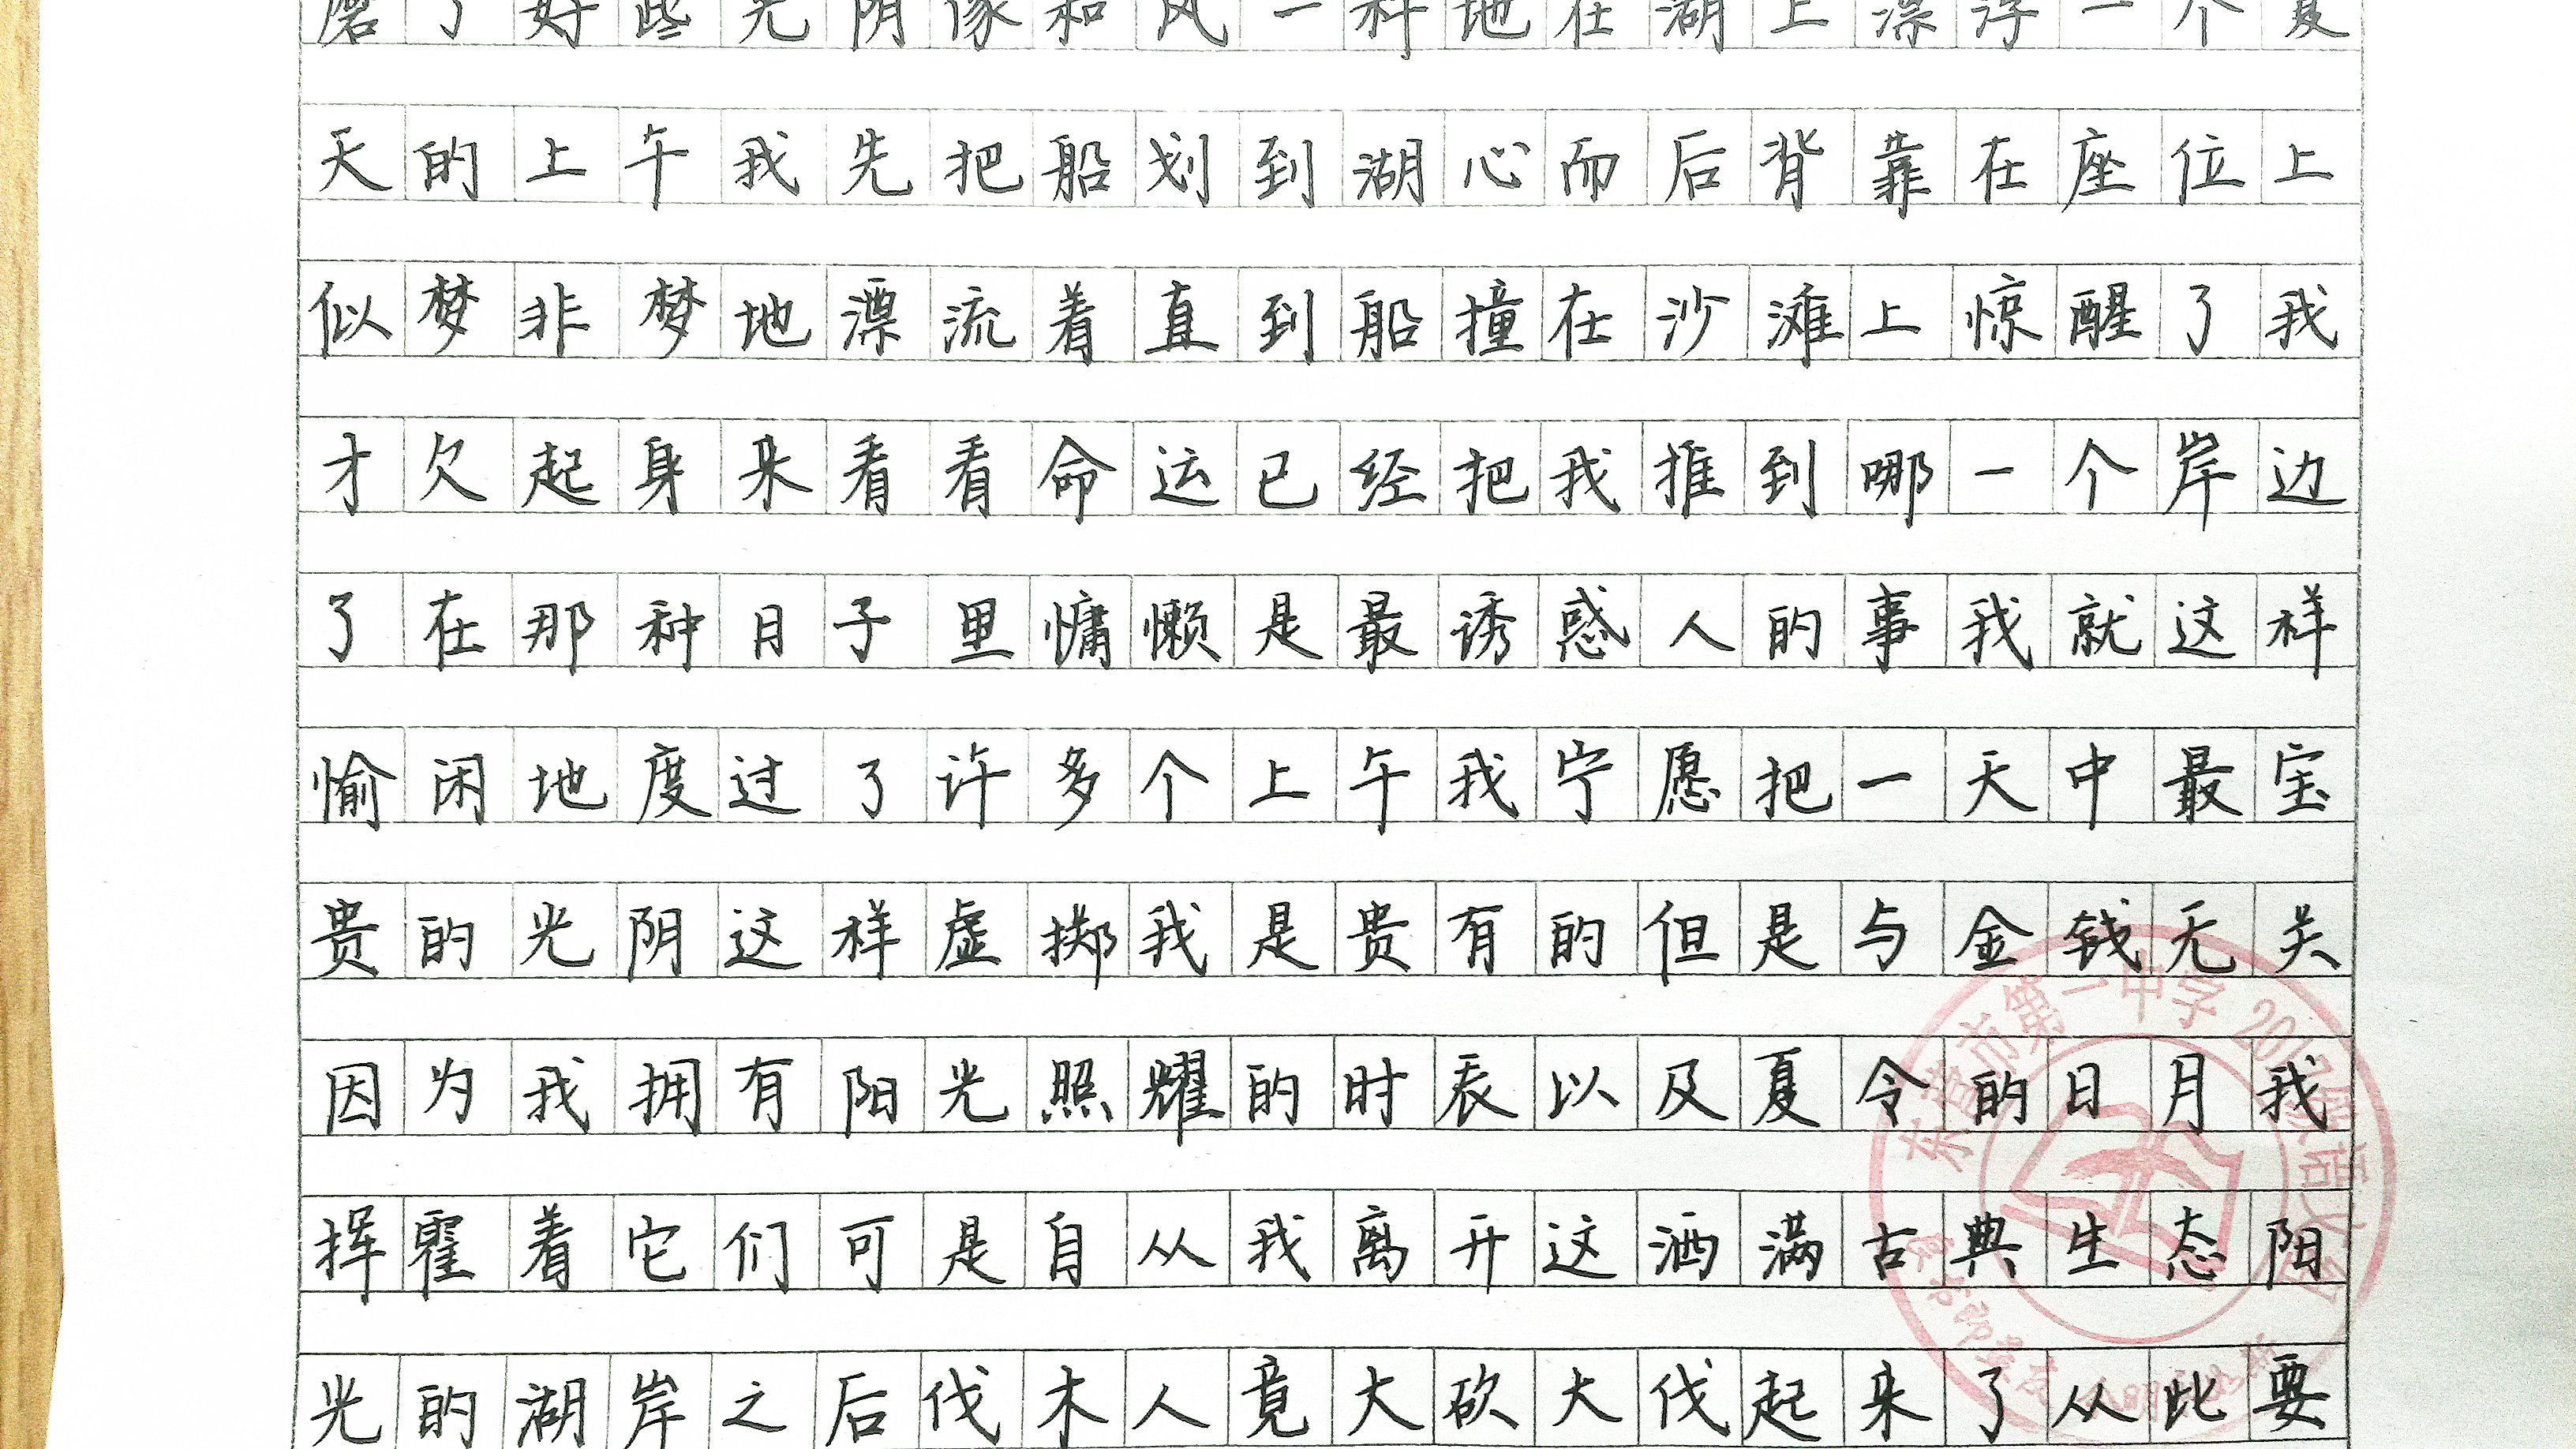 磨了好些光阴像和风一种地在湖上漂浮一个夏
天的上午我先把船划到湖心而后背靠在座位上
似梦非梦地漂流着直到船撞在沙滩上惊醒了我
才欠起身来看看命运已经把我推到哪一个岸边
了在那种日子里慵懒是最诱惑人的事我就这样
愉闲地度过了许多个上午我宁愿把一天中最宝
贵的光阴这样虚掷我是贵有的但是与金钱无关
因为我拥有阳光照耀的时辰以及夏令的日月我
挥霍着它们可是自从我离开这洒满古典生态阳
光的湖岸之后伐木人竟大砍大伐起来了从此要
东营市第一中学